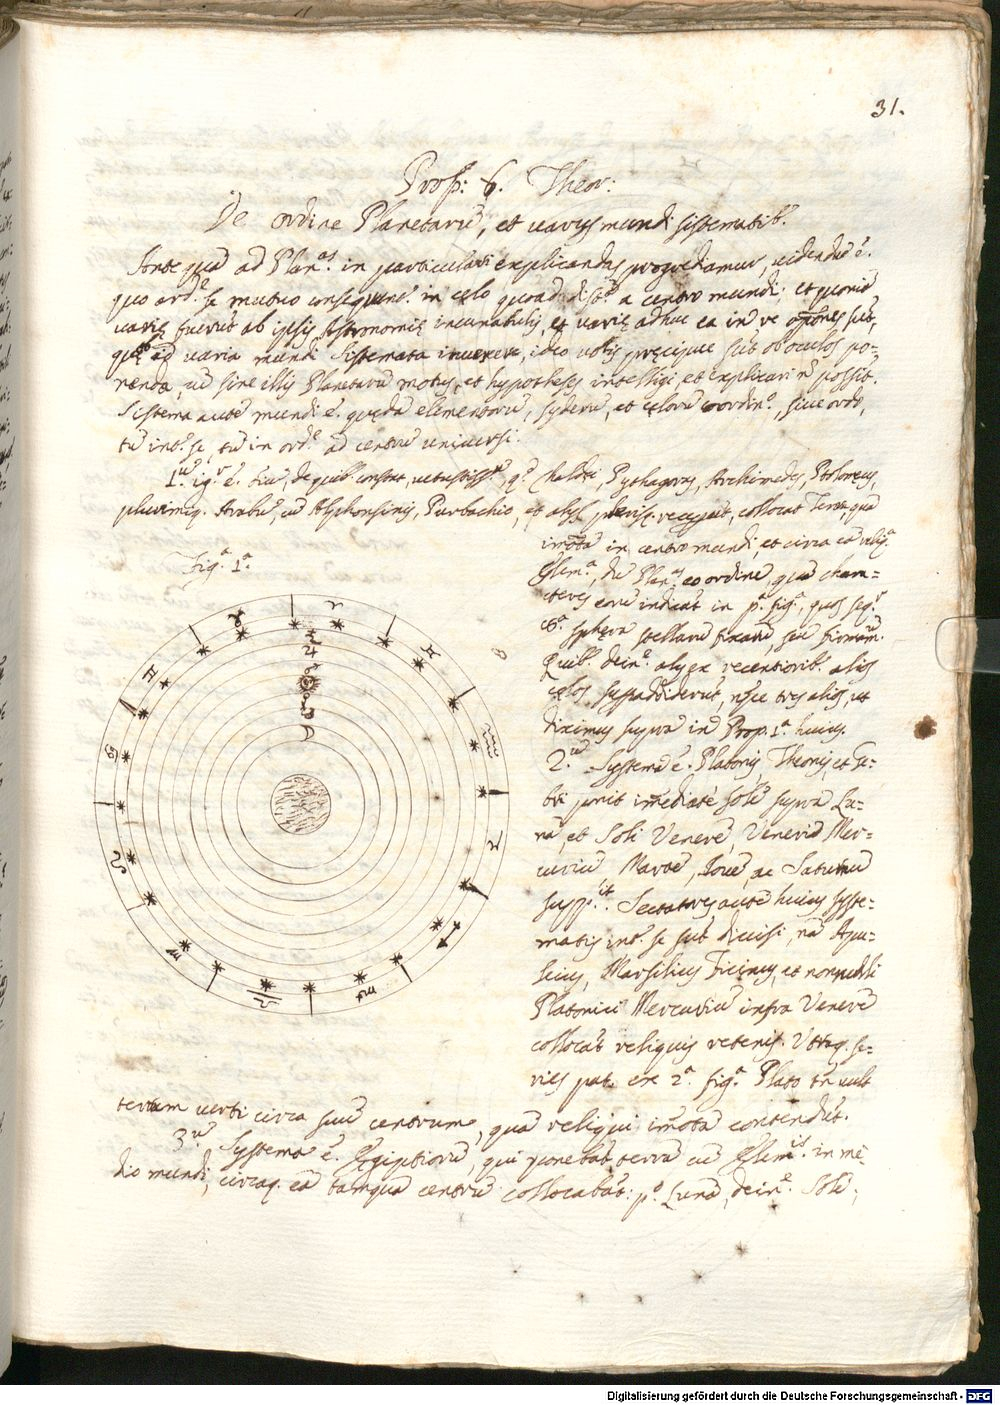 31.
Prop: 6. Theor:
De ordine Planetarũ, et varijs mundi sistematib.
Antequã ad Plan.as in particulari explicandas progrediamur, videndũ ẽ.
quo ord.e se mutuo conseq in celo quoad dist.ã a centro mundi; et quoniã
varię fuerũt ab ipsis Astronomię incunabulis, et varię adhuc ea in re op̃ones sũt,
quę ad varia mundi Sistemata, ideo vobis pręcipue sũt ob oculos po=
nenda, cũ sine illis Planetarũ motus, et hypotheses intelligi et explicari ñ possĩt.
Sistema autẽ mundi ẽ. quędã elementorũ, syderũ, et cęlorũ coordin.o, sive ordo,
tũ int.r se, tũ in ord.e ad centrũ universi.
1.ũ ig.r ẽ. de quib. constat, vetustiss, q.d Chaldei, Pythagoras, Archimedes, Ptolomeus,
plurimiq. Arabũ, cũ Alphonsinis, Purbachio, et alijs pleriq. receput, collocat Terrã quã
Fig.a 1.a
imõtã in centro mundi, et circa eã reliq.a
Elem.a, dẽ Plan.as eo ordine, quẽ charac=
cteres eorũ indicãt in p.a fig.a, quos seq.r
8.a sphęra stellarũ fixarũ, seu firmam.m
Quib. dein.e alij ex recentiorib. alios
cęlos supaddiderũt, ñpe tres alios, ut
diximus supra in Prop. 1.a huius.
2.ũ Systema ẽ. Platonis, Theonis, et Ge=
bri ponit imediatè Solẽ supra Lu=
nã, et Soli Venerẽ, Veneri Mer=
curiũ, Martẽ, Iovẽ, ac Saturnũ
supp.it. Sectatores autẽ huius syste=
matis int.r se sũt divisi, nã Apu=
leius, Marsilius Ficinus, et nonnulli
Platonici Mercuriũ infra Venerẽ
collocãt reliquis retentis. Utraq. se=
ries pat. ex 2.a fig.a Plato tñ vult
terram verti circa suũ centrum, quã reliqui imõtã contendũt.
3.ũ Systema ẽ. Ęgiptiorũ, qui ponebãt terrã cũ Elem.is in me=
dio mundi, circaq. eã tamquã centrũ collocabãt: p.o Lunã, dein.e Solẽ,
Digitalisierung gefördert durch die Deutsche Forschungsgemeinschaft - DFG